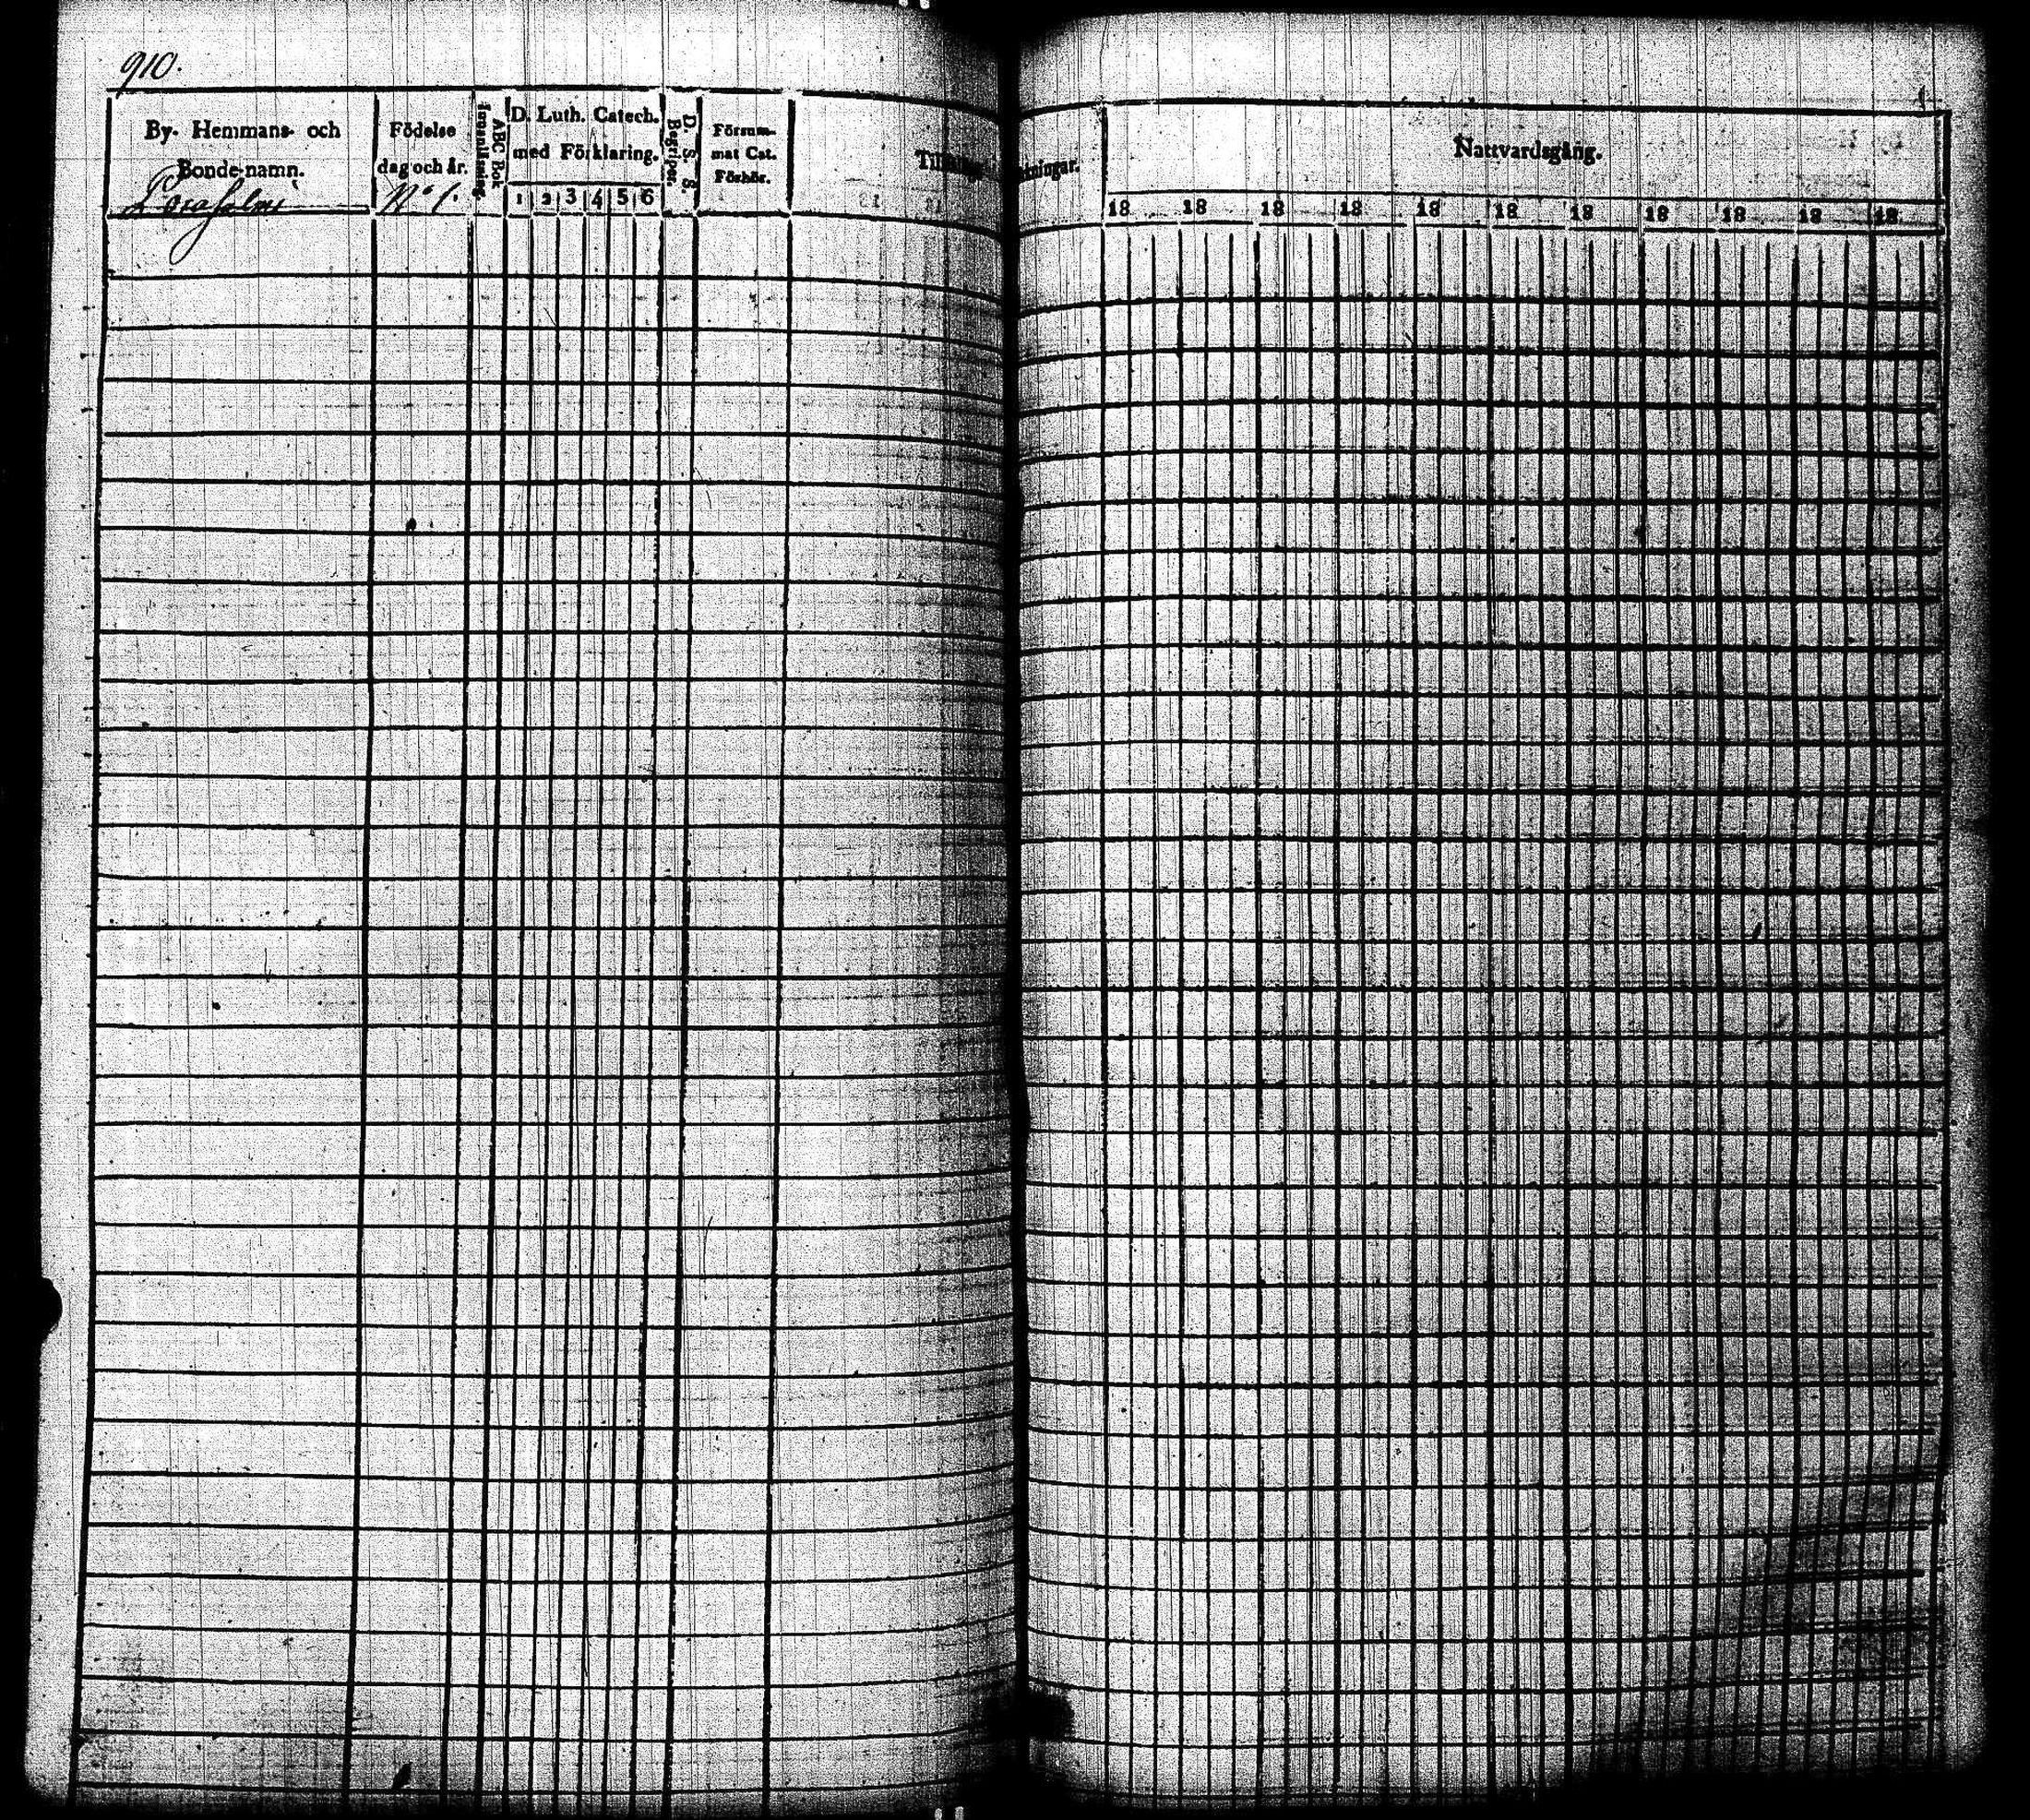 910.
By- Hemmans- och
Bonde-namn.
Födelse
dag och år.
No 1.
ABC Bok
Innanläsning.
D. Luth. Catech.
med Förklaring.
1 2 3 4 5 6
D. S. S.
Begriper.
Försum-
mat Cat.
Förhör.
Nattvardsgång.
18 18 18 18 18 18 18 18 18 18 18